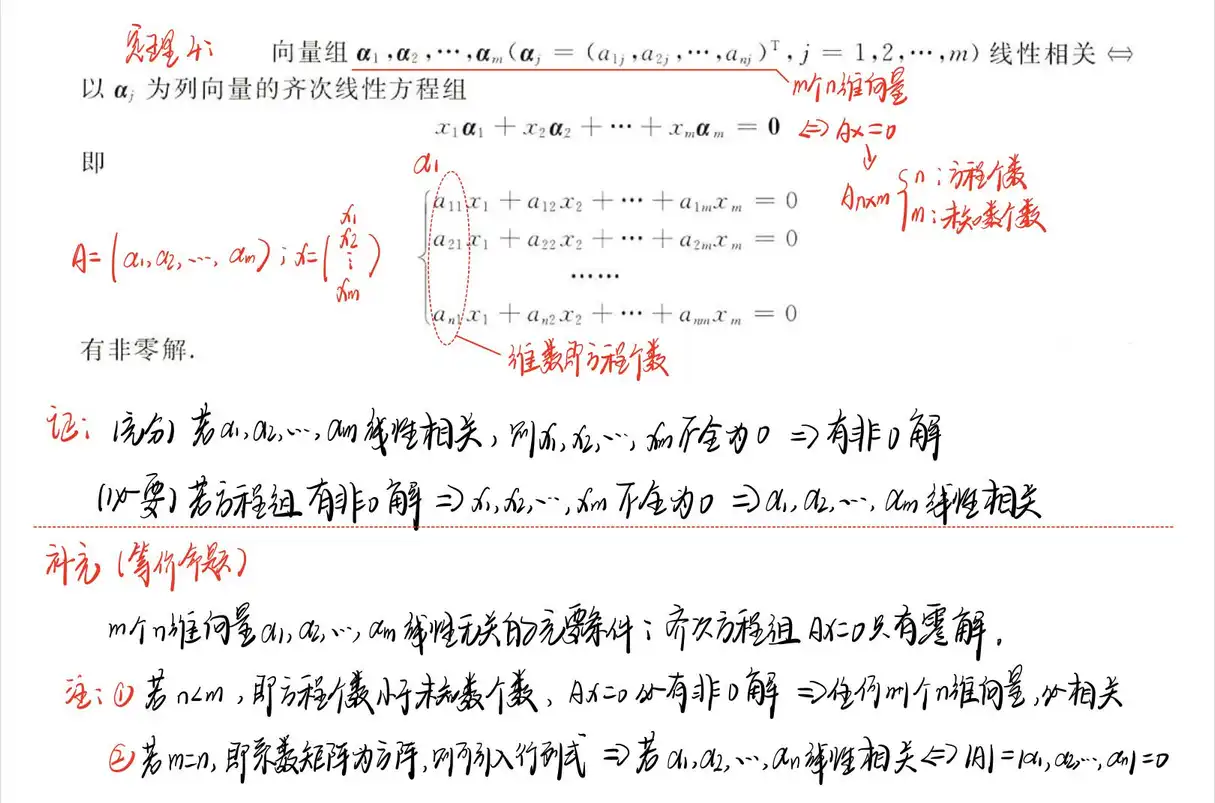 定理4: 向量组 α₁,α₂,⋯,αₘ(αⱼ = (a₁ⱼ,a₂ⱼ,⋯,aₙⱼ)ᵀ, j = 1,2,⋯,m) 线性相关 ⇔
m个n维向量
以 αⱼ 为列向量的齐次线性方程组
x₁α₁ + x₂α₂ + ⋯ + xₘαₘ = 0 ⇔ Ax=0
即
α₁
↓
Aₙₓₘ { n:方程个数
m:未知数个数
a₁₁x₁ + a₁₂x₂ + ⋯ + a₁ₘxₘ = 0
a₂₁x₁ + a₂₂x₂ + ⋯ + a₂ₘxₘ = 0
A=(α₁,α₂,⋯,αₘ);x=(x₁ x₂ ⋮ xₘ)
⋯⋯
aₙ₁x₁ + aₙ₂x₂ + ⋯ + aₙₘxₘ = 0
有非零解.
维数即方程个数
证: (充分) 若α₁,α₂,⋯,αₘ线性相关,则x₁,x₂,⋯,xₘ不全为0 ⇒ 有非0解
(必要) 若方程组有非0解 ⇒ x₁,x₂,⋯,xₘ不全为0 ⇒ α₁,α₂,⋯,αₘ线性相关
补充 (等价命题)
m个n维向量α₁,α₂,⋯,αₘ线性无关的充要条件:齐次方程组Ax=0只有零解.
注:① 若n<m,即方程个数小于未知数个数,Ax=0必有非0解 ⇒ 任何m个n维向量,必相关
② 若m=n,即系数矩阵为方阵,则引入行列式 ⇒ 若α₁,α₂,⋯,αₙ线性相关 ⇔ |A|=|α₁,α₂,⋯,αₙ|=0